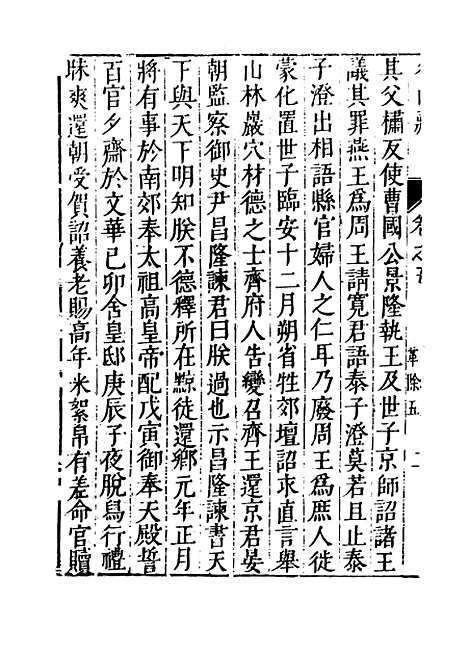 卷之五
革除五
其父橚反使曹國公景隆執王及世子京師詔諸王
議其罪燕王爲周王請寬君語泰子澄莫若且止泰
子澄出相語縣官婦人之仁耳乃廢周王爲庶人徙
蒙化置世子臨安十二月朔省牲郊壇詔求直言舉
山林巖穴材德之士齊府人告變召齊王還京君晏
朝監察御史尹昌隆諫君曰朕過也示昌隆諫書天
下與天下明知朕不德釋所在黥徒還鄉元年正月
將有事於南郊奉太祖高皇帝配戊寅御奉天殿誓
百官夕齋於文華己卯舍皇邸庚辰子夜脫舄行禮
昧爽還朝受賀詔養老賜高年米絮帛有差命官贖